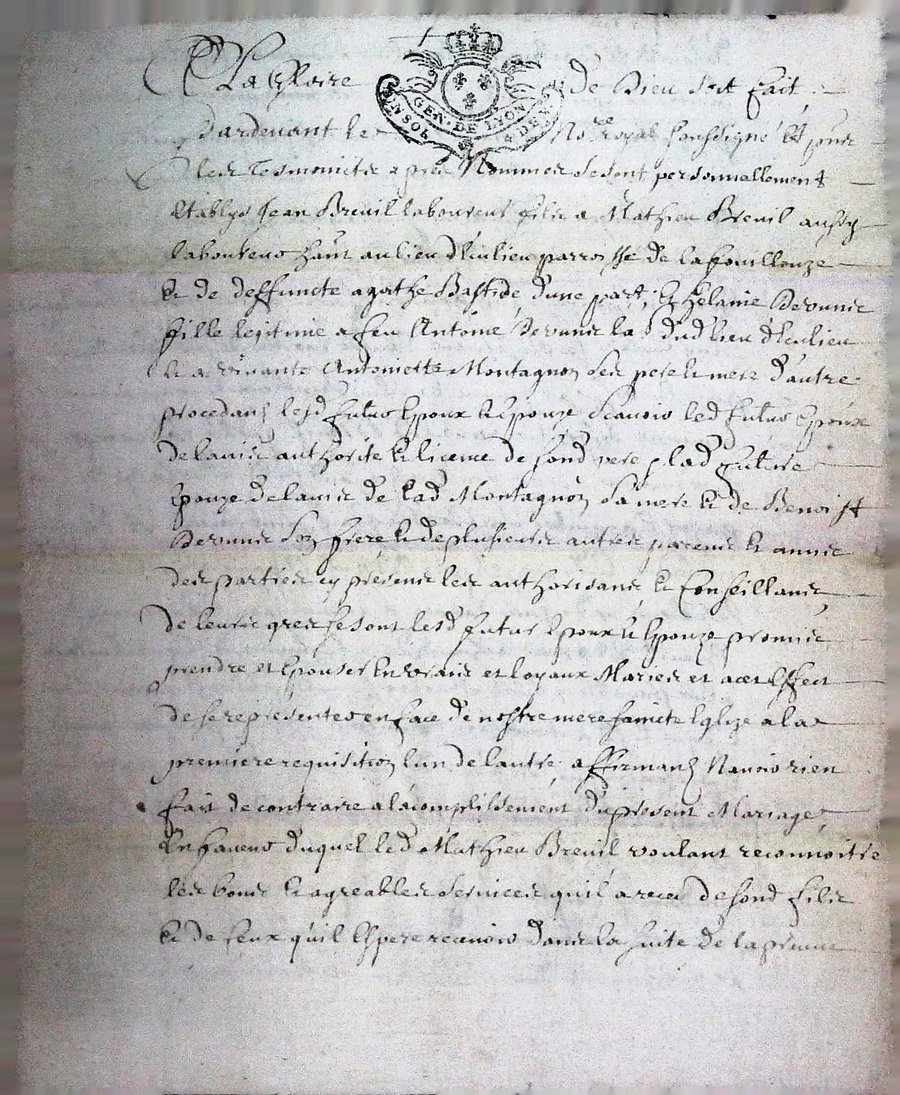 A La Gloire de Dieu soit fait
GEN. DE LYON
UN SOL 4 DEN
Pardevant le No.re royal soussigné et pour
les Tesmointz apres Nommes se sont personnellement
Establys Jean Breuil laboureur filz a Mathieu Breuil aussy
laboureur hant au lieu d'Eculieu parroisse de la fouillouze
et de deffuncte agathe Bastide d'une part, Et helaine Devunie
fille legitime a feu Antoine Devunie la d'Eculieu
et a vivante Antoinette Montagnon ses pere et mere d'autre
procedans lesd futur Epoux et Epouze Scavoir led futur Epoux
de lavis authorité et licence de sond pere, lad future
Epouze de lavis de lad Montagnon sa mere et de Benoist
Devunie son frere et de plusieurs autres parens et amis
des parties cy presens les authorisans et Conseillans
de leurs grés se sont lesd futur Epoux et Epouze promis
prendre et Epouser en vrais et loyaux Maries et a cet Effect
de se representer en face de nostre mere saincte Eglize a la
premiere requisition l'un de lautre affirmans N'avoir rien
fait de contraire a lacomplissement du present Mariage
En faveur duquel led Mathieu Breuil voulant reconnoitre
les bons et agreables services quil a receu de sond filz
et de ceux qu'il Espere recevoir dans la suite de la